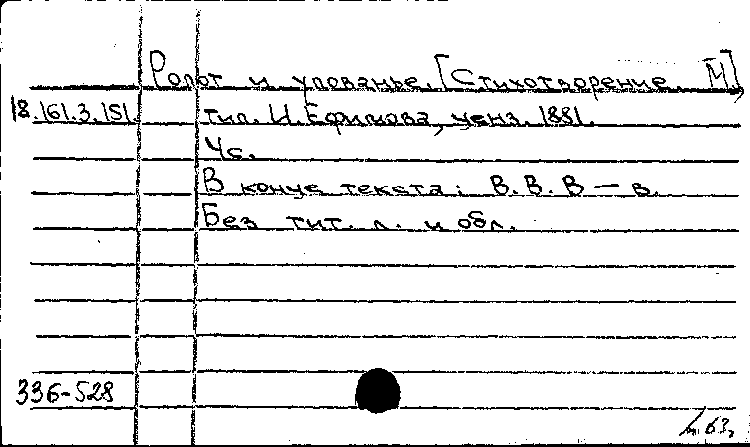 Ропот и упованье. [Стихотворение. М],
18.161.3.151. тип. И. Ефимова, ценз. 1881.
4 с.
В конце текста: В. В. В — в.
Без тит. л. и обл.
336-528
63,